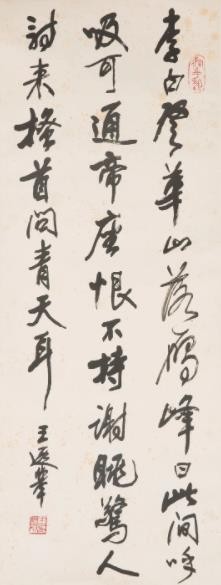 李白登華山落鴈峰曰此間呼
吸可通帝座恨不持謝朓驚人
詩来搔首問青天耳 王遐舉